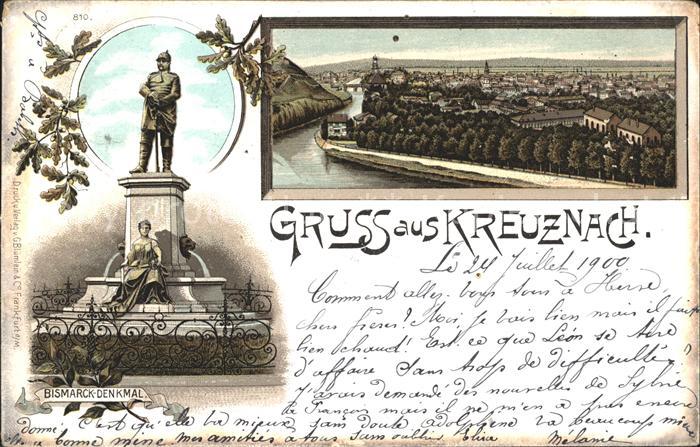 810.
GRUSS aus KREUZNACH.
Druck u. Verlag v. G. Blümlein & Co. Frankfurt a/M.
BISMARCK-DENKMAL
Le 24 Juillet 1900
Comment allez-vous tous à
chers frères? Moi je vais bien mais il fait
bien chaud! Est ce que Léon se tire
d'affaire sans trop de difficulté?
J'avais demandé des nouvelles de Sylvie
à François mais il ne m'en a pas encore
donné. C'est qu'elle va mieux sans doute va beaucoup mieux
bonne mine. Mes amitiés à tous sans oublier Mélanie